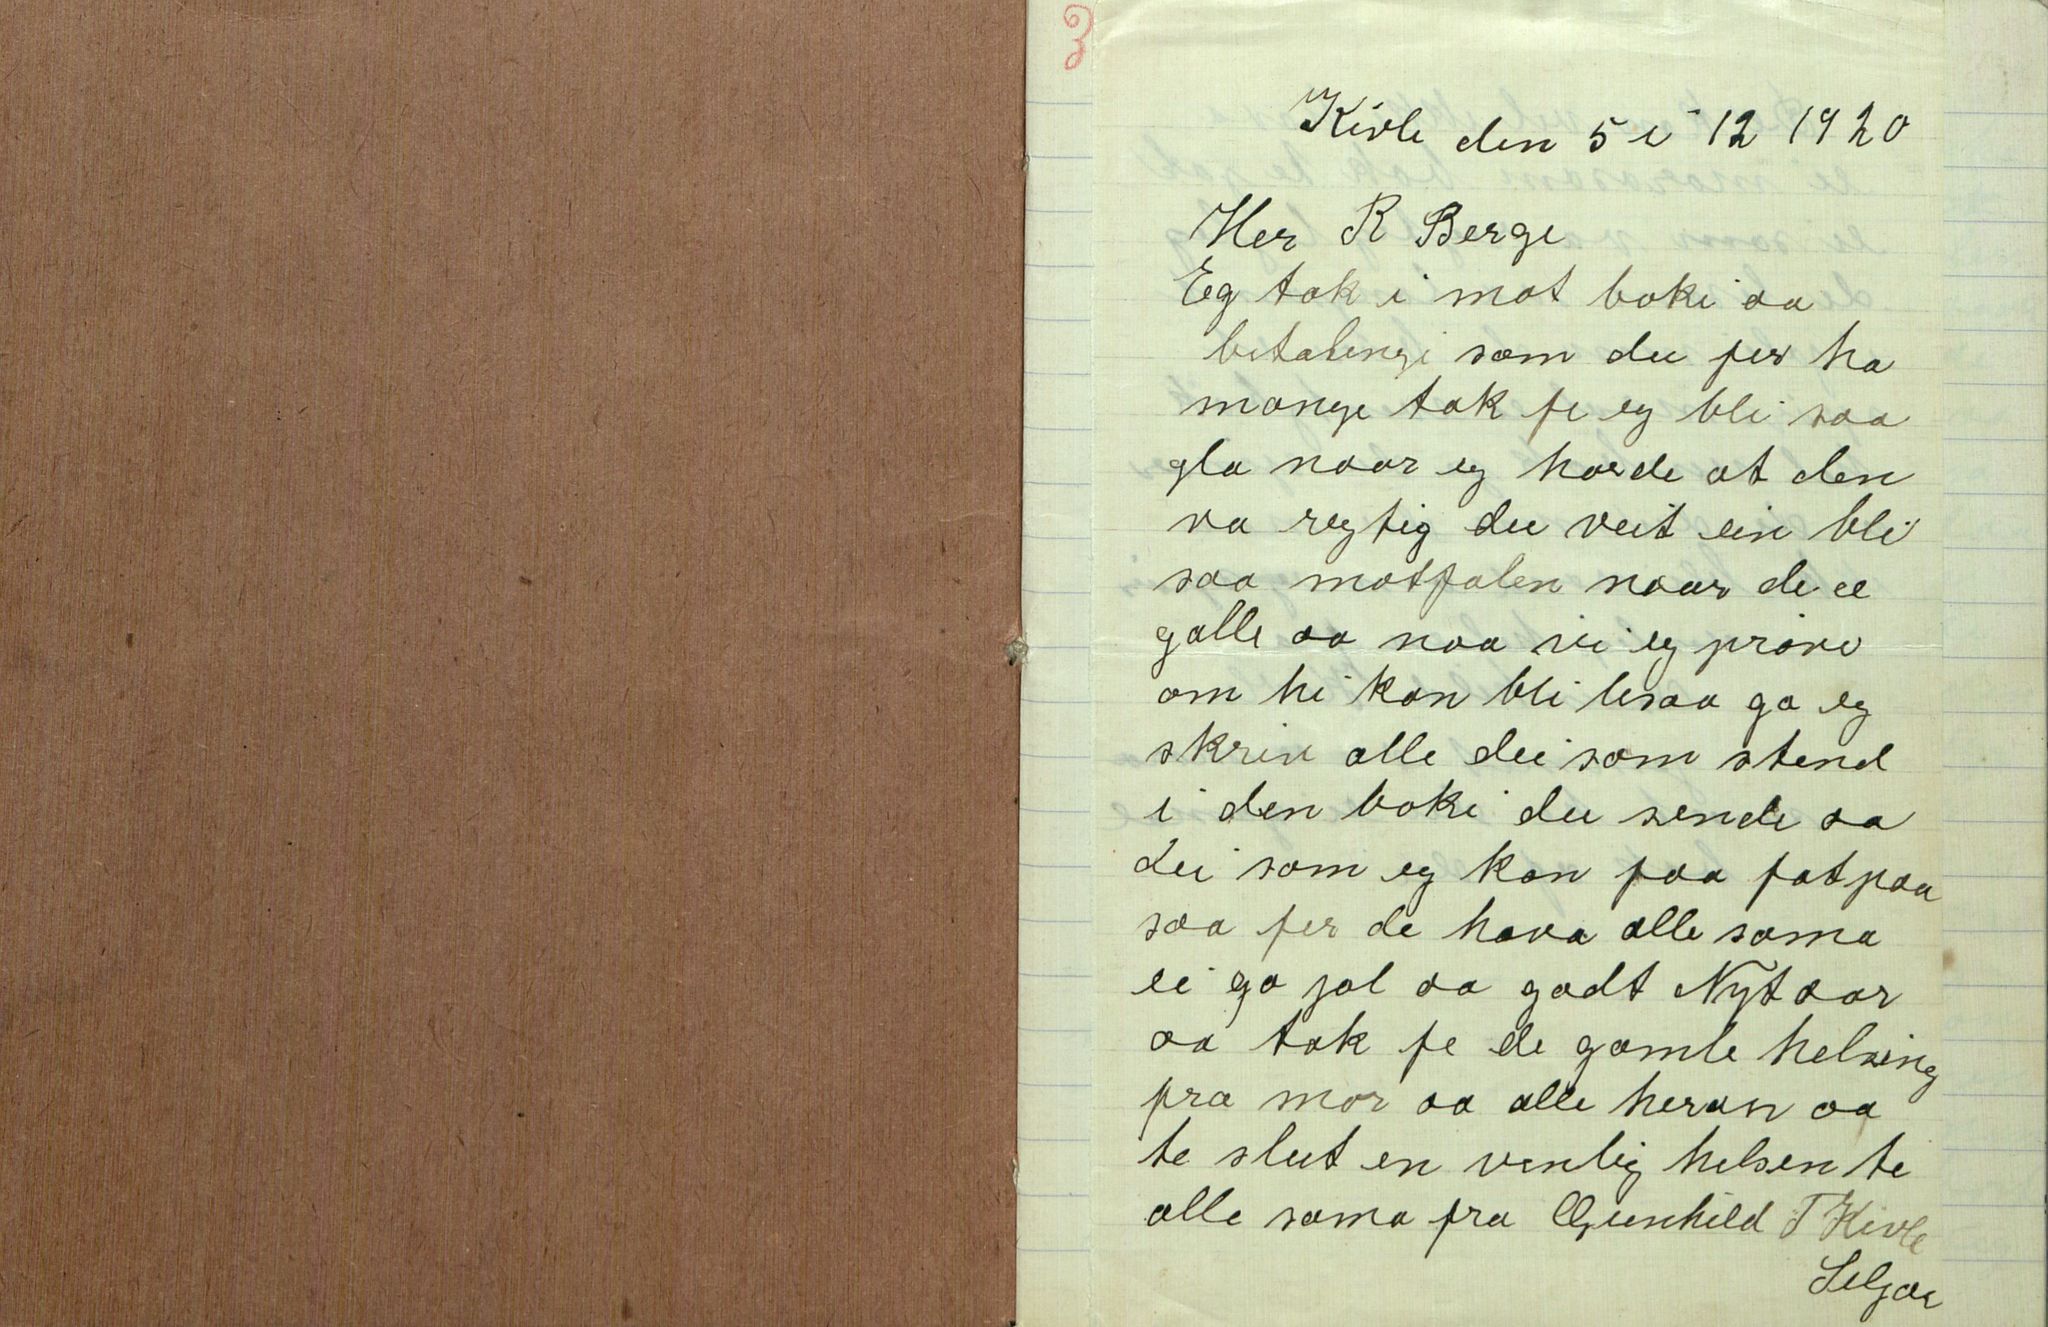 3
Kivle den 5 i 12 1920
Her R Berge
Eg tok i mot boki aa
betalingi som du fer ha
mange tak fe eg bli saa
gla naar eg hørde at den
va regtig du veit ein bli
saa motfalen naar de æ
galle aa naa vi eg prøve
om hi kan bli lesaa ga eg
skriv alle dei som stend
i den boki du sende aa
dei som eg kan faa fat paa
saa fer de hava alle sama
ei go jol aa godt Nyt aar
aa tak fe de gamle helsing
fra mor aa alle heran aa
te slut en venlig helsen te
alle sama fra Gunhild T Kivle
Seljor